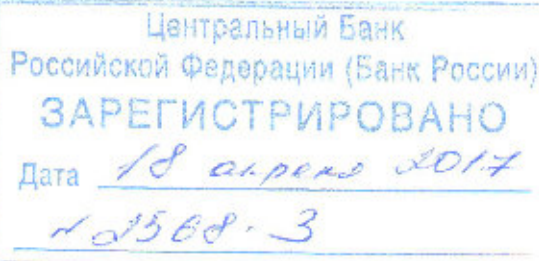 Центральный Банк
Российской Федерации (Банк России)
ЗАРЕГИСТРИРОВАНО
Дата 18 апреля 2017
№ 2568-З